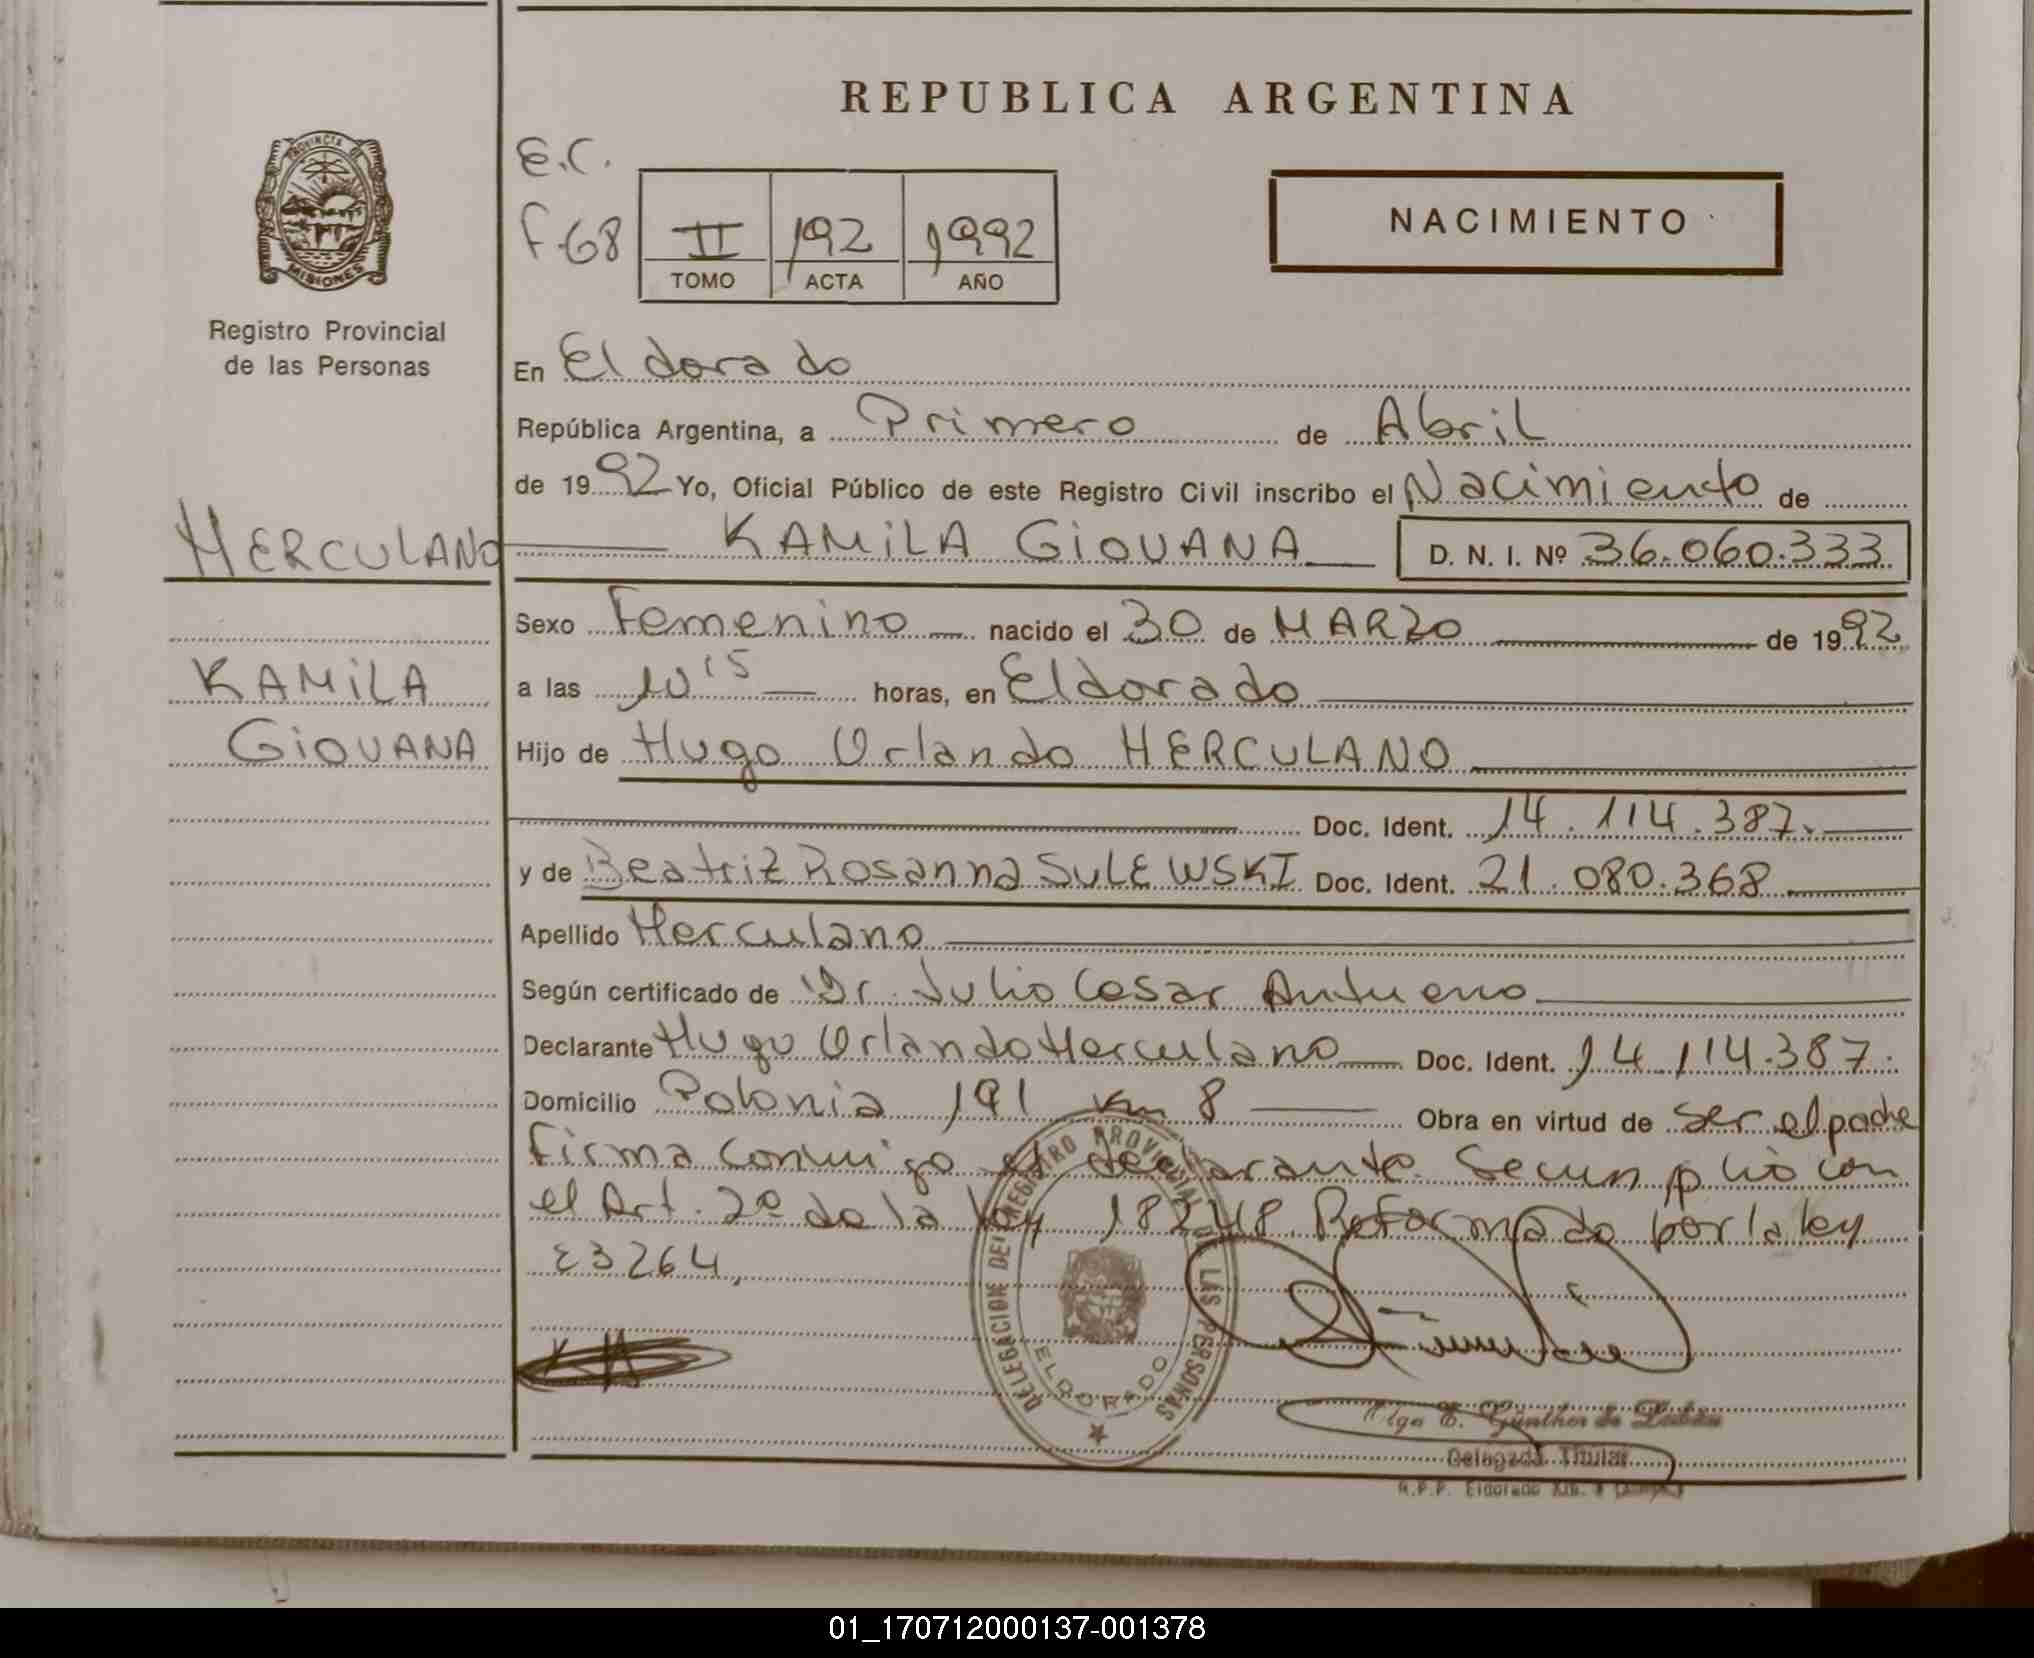 REPUBLICA ARGENTINA
PROVINCIA DE MISIONES
Registro Provincial
de las Personas
E.C.
F-68
II 192 1992
TOMO ACTA AÑO
NACIMIENTO
En Eldorado
República Argentina, a Primero de Abril
de 1992 Yo, Oficial Público de este Registro Civil inscribo el Nacimiento de
HERCULANO KAMILA GIOVANA D. N. I. Nº 36.060.333
Sexo Femenino nacido el 30 de MARZO de 1992
KAMILA
a las 10 15 horas, en Eldorado
GIOVANA
Hijo de Hugo Orlando HERCULANO
Doc. Ident. 14.114.387.
y de Beatriz Rosanna SULEWSKI Doc. Ident. 21.080.368
Apellido Herculano
Según certificado de Dr. Julio Cesar Antueno
Declarante Hugo Orlando Herculano Doc. Ident. 14.114.387.
Domicilio Polonia 191 Km 8 Obra en virtud de ser el padre
Firma conmigo el declarante. Se cumplió con
el Art. 2º de la ley 18248 Reformado por la ley
23264.
DELEGACION DEL REGISTRO PROVINCIAL DE LAS PERSONAS
ELDORADO
Olga E. Günther de
Delegada Titular
R.P.P. Eldorado Km. 9
01_170712000137-001378